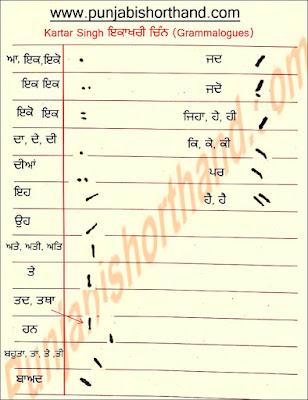 www.punjabishorthand.com
Kartar Singh ਇਕਾਖਰੀ ਚਿੰਨ (Grammalogues)
ਆ, ਇਕ,ਇਕੇ ਜਦ
ਇਕ ਇਕ ਜਦੋਂ
ਇਕੋ ਇਕ ਜਿਹਾ, ਹੇ, ਹੀ
ਦਾ, ਦੇ, ਦੀ ਕਿ, ਕੇ, ਕੀ
ਦੀਆਂ ਪਰ
ਇਹ ਹੈ, ਹੈ
ਉਹ
ਅਤੇ, ਅਤੀ, ਅਤਿ
ਤੇ
ਤਦ, ਤਥਾ
ਹਨ
ਬਹੁਤਾ, ਤਾ, ਤੇ ,ਤੀ
ਬਾਅਦ
Punjabishorthand.com